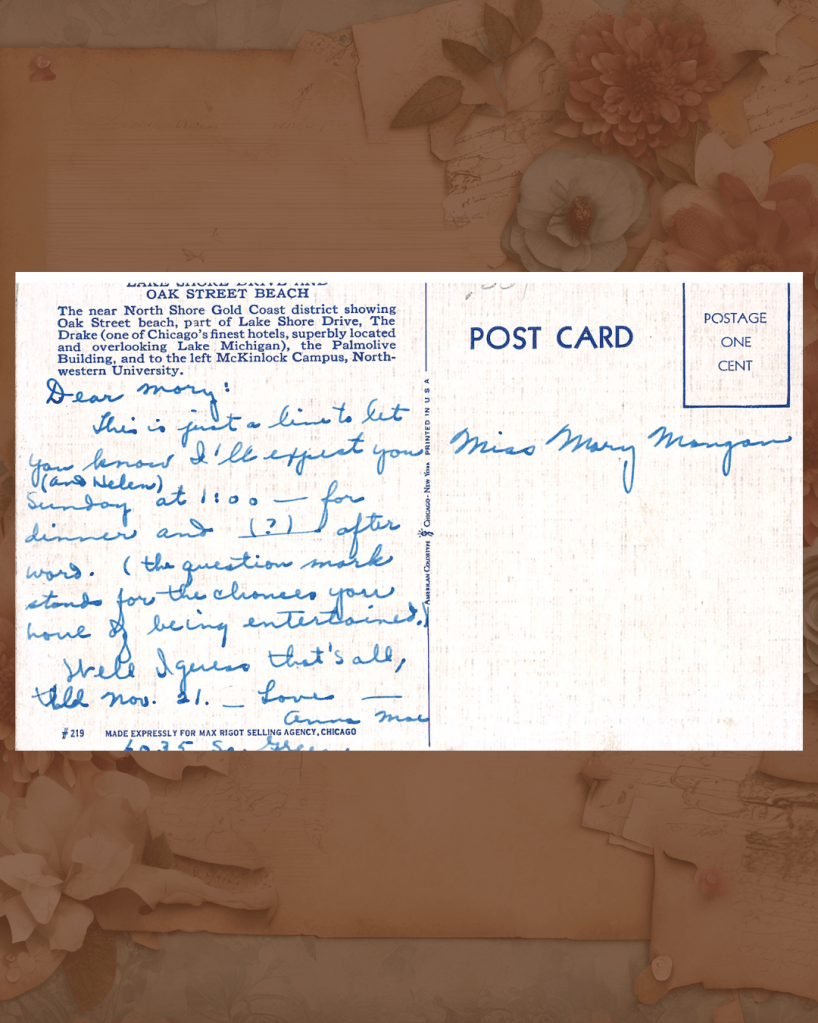 LAKE SHORE DRIVE AND
OAK STREET BEACH
The near North Shore Gold Coast district showing
Oak Street beach, part of Lake Shore Drive, The
Drake (one of Chicago's finest hotels, superbly located
and overlooking Lake Michigan), the Palmolive
Building, and to the left McKinlock Campus, North-
western University.
Dear Mary:
This is just a line to let
you know I'll expect you
(and Helen)
Sunday at 1:00 — for
dinner and (?) after
word. (the question mark
stands for the chances you
have of being entertained.)
Well I guess that's all,
till Nov. 21. — Love —
Anna Mae
6035 So. Green
#219 MADE EXPRESSLY FOR MAX RIGOT SELLING AGENCY, CHICAGO
AMERICAN COLORTYPE CHICAGO · NEW YORK PRINTED IN U S A
POST CARD
POSTAGE
ONE
CENT
Miss Mary Mangan